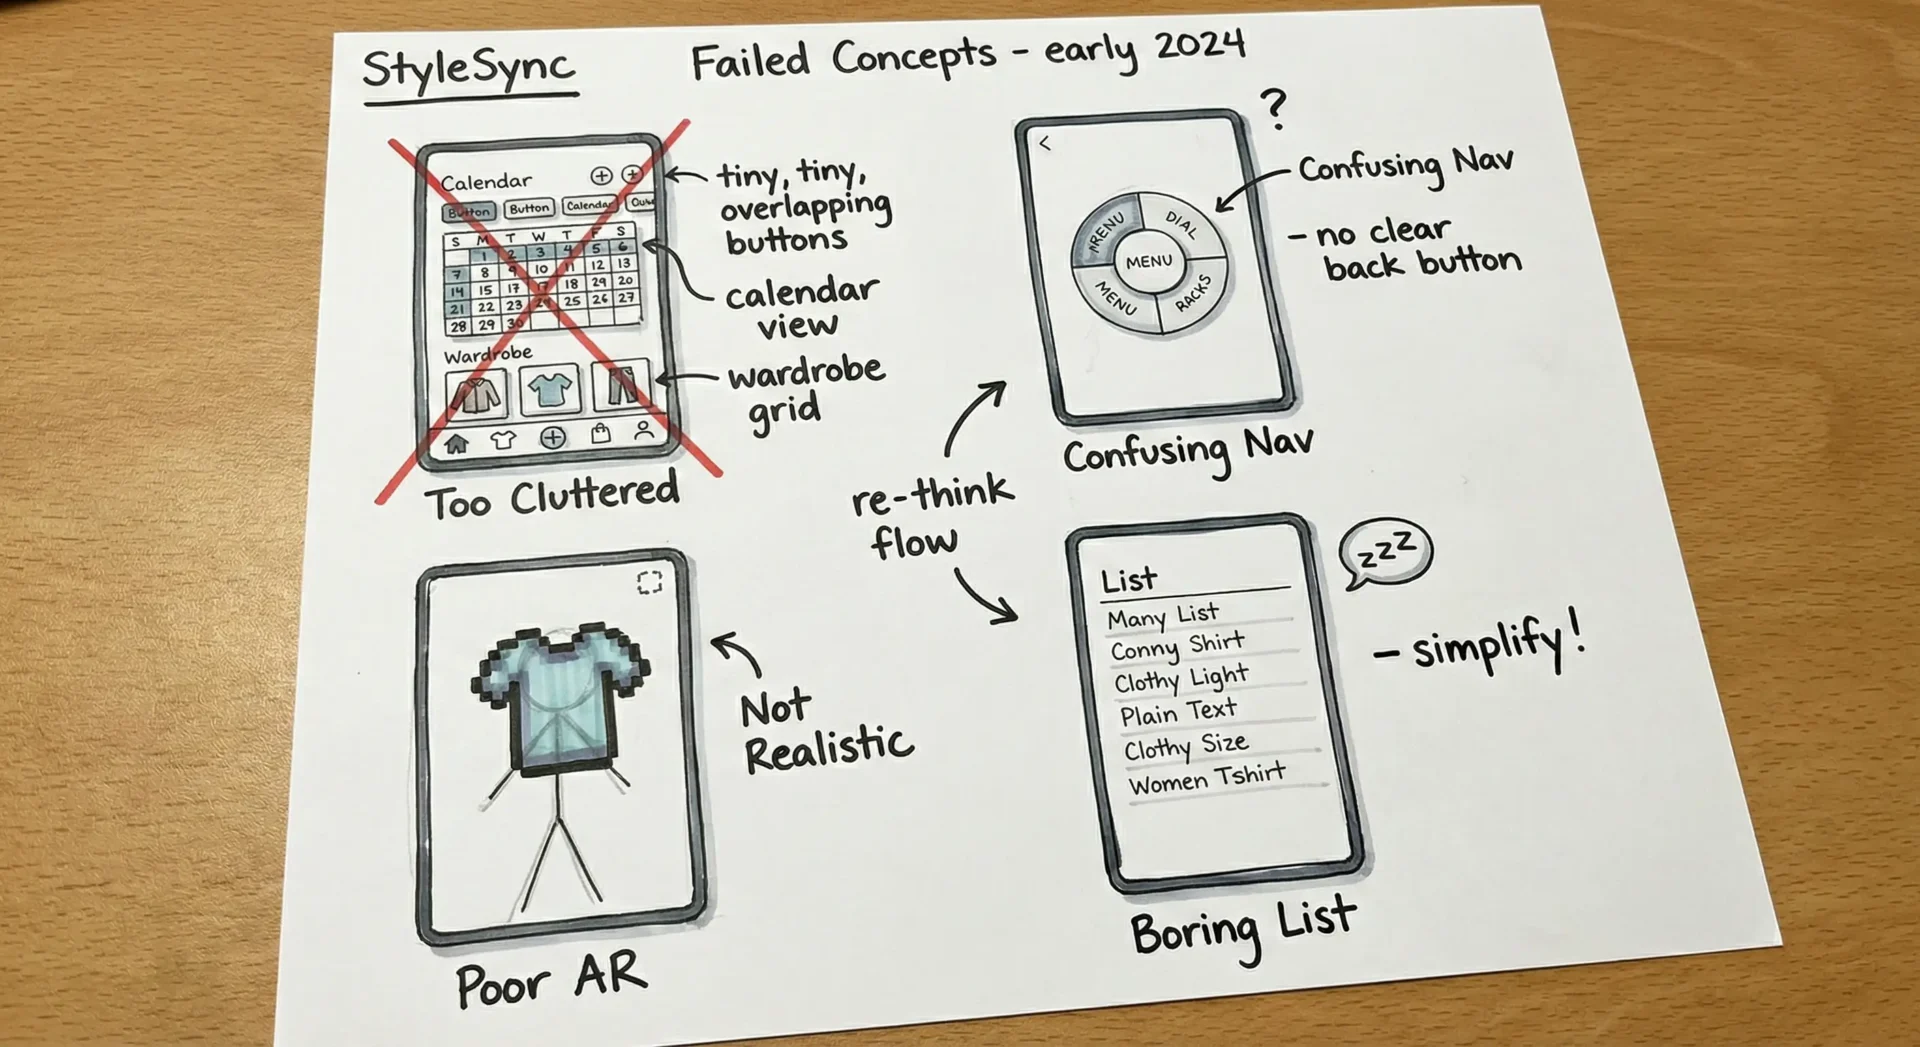 StyleSync
Failed Concepts - early 2024
Calendar
Button Button Calendar
S M T W T F S
1 2 3 4 5 6
7 8 9 10 11 12 13
14 15 17 17 18 29 20
21 22 23 24 25 26 27
28 29 30
Wardrobe
tiny, tiny,
overlapping
buttons
calendar
view
wardrobe
grid
Too Cluttered
?
<
DIAL
MENU
MENU
RACKS
Confusing Nav
- no clear
back button
Confusing Nav
re-think
flow
Not
Realistic
Poor AR
List
Many List
Conny Shirt
Clothy Light
Plain Text
Clothy Size
Women Tshirt
zzz
- simplify!
Boring List